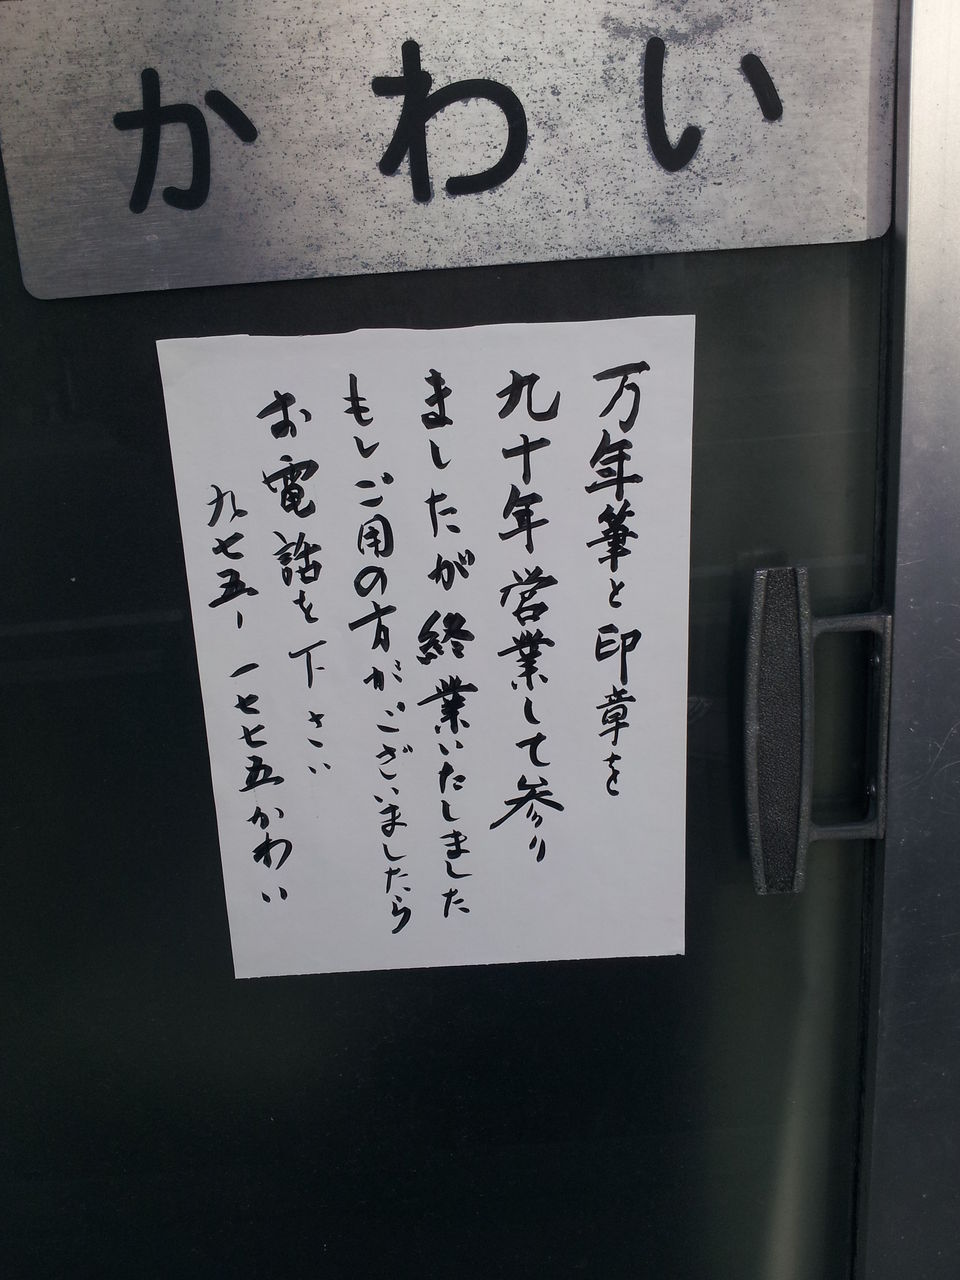 かわい
万年筆と印章を
九十年営業して参り
ましたが終業いたしました
もしご用の方がございましたら
お電話を下さい
九七五ー一七七五かわい